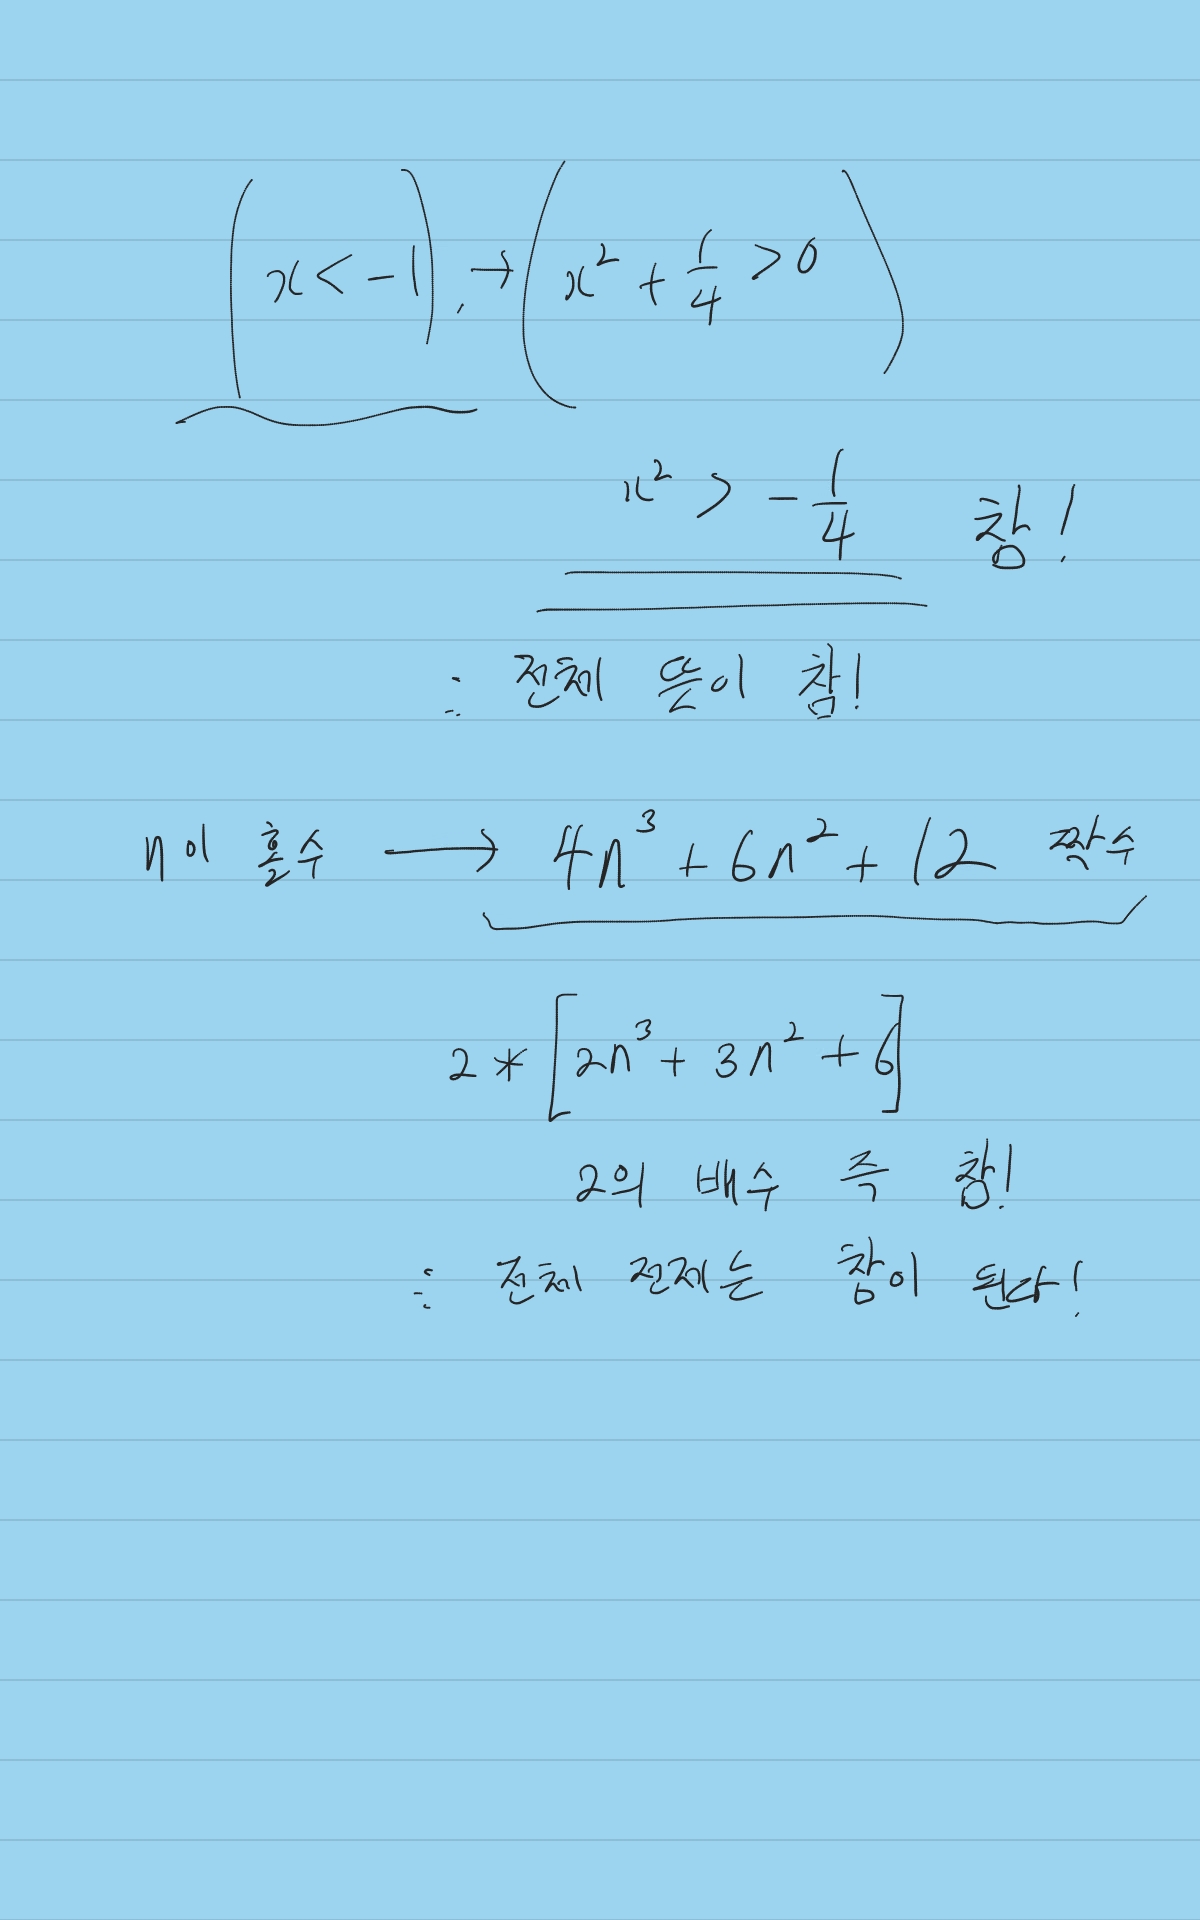 (x < -1). → (x² + 1/4 > 0)
x² > - 1/4 참!
∴ 전체 뜻이 참!
n이 홀수 → 4n³ + 6n² + 12 짝수
2 * [2n³ + 3n² + 6]
2의 배수 즉 참!
∴ 전체 전제는 참이 된다!